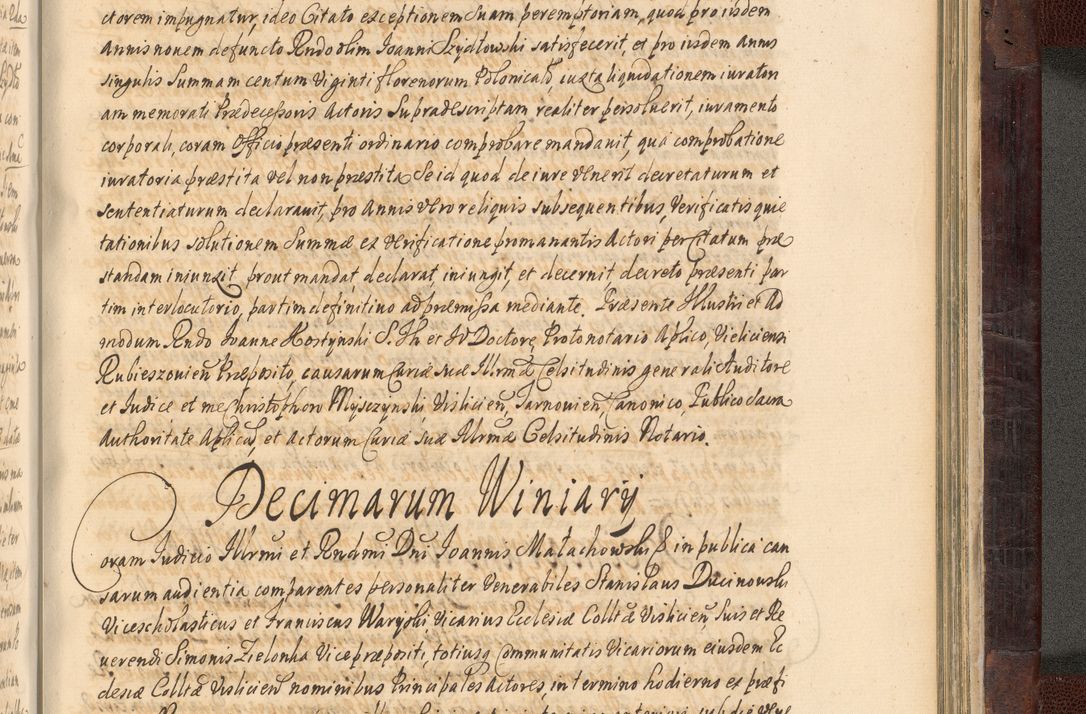 ctorem impugnatur, ideo Citato exceptionem Suam peremptoriam, quod pro iisdem
Annis novem defuncto Rndo olim Ioanni Szydtowski satisfecerit, et pro iisdem Annis
singulis Summam centum Viginti florenorum PolonicaŁ, iuxta liquidationem iuratori
am memorati Prædecessoris Actoris Supradescriptam realiter persolverit, iuramento
corporali, coram Officio præsenti ordinario comprobare mandavit, qua comprobatione
iuratoria præstita vel non præstita Se id quod de iure Venerit decretaturum et
sententiaturum declaravit, pro Annis vero reliquis subsequentibus, Verificatis quie
tationibus solutionem Summæ ex Verificatione promanantis Actori per Citatum præ
standam iniunxit, prout mandat, declarat, iniungit, et decernit decreto præsenti par
tim interlocutorio, partim definitivo ad præmissa mediante. Præsente Illustri et Ad
modum Rndo Ioanne Kostynski S. Th et IV Doctore, Protonotario Aplico, Vieliciensi
Rubieszovien Præposito, causarum Curiæ suæ Illrmæ Celsitudinis generali Auditore
et Iudice et me Christophoro Mysczynski, Vislicien, Tarnovien, Canonico, Publico Sacra
Authoritate Aplica, et Actorum Curiæ suæ Illrmæ Celsitudinis Notario.
Decimarum Winiary
Coram Iudicio Illrmi et Rndmi Dni Ioannis Małachowski in publica cau
sarum audientia comparentes personaliter Venerabiles Stanislaus Ducinowski
Vicescholasticus et Franciscus Waryski Vicarius Ecclesiæ Colltæ Vislicien, Suis et Re
verendi Simonis Zielonka Vicepræpositi, totiusq Communitatis Vicariorum eiusdem Ec
clesiæ Colltæ Vislicien nominibus Principales Actores, in termino hodierno ex præfi